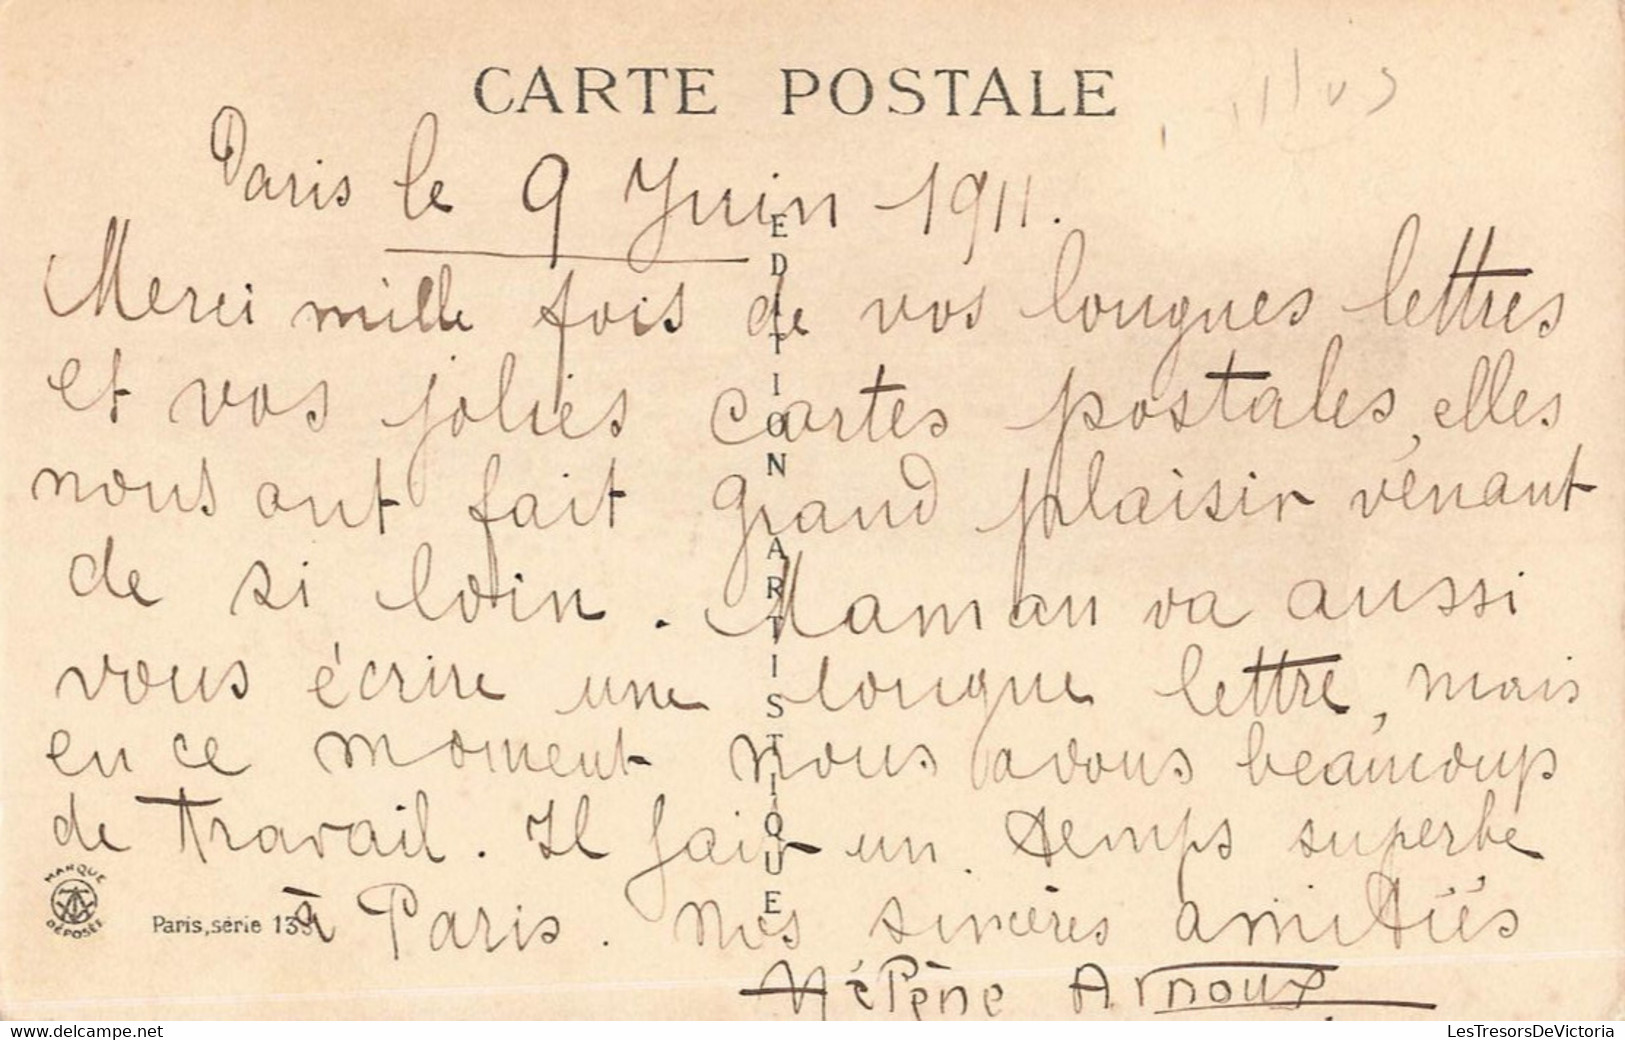 CARTE POSTALE
Paris le 9 Juin 1911.
Merci mille fois de vos longues lettres
et vos jolies cartes postales, elles
nous ont fait grand plaisir venant
de si loin. Maman va aussi
vous écrire une longue lettre, mais
en ce moment nous avons beaucoup
de travail. Il fait un temps superbe
à Paris. Nos sincères amitiés
Hélène Arnoux
EDITION ARTISTIQUE
MARQUE DÉPOSÉE
Paris, série 13
LesTresorsDeVictoria